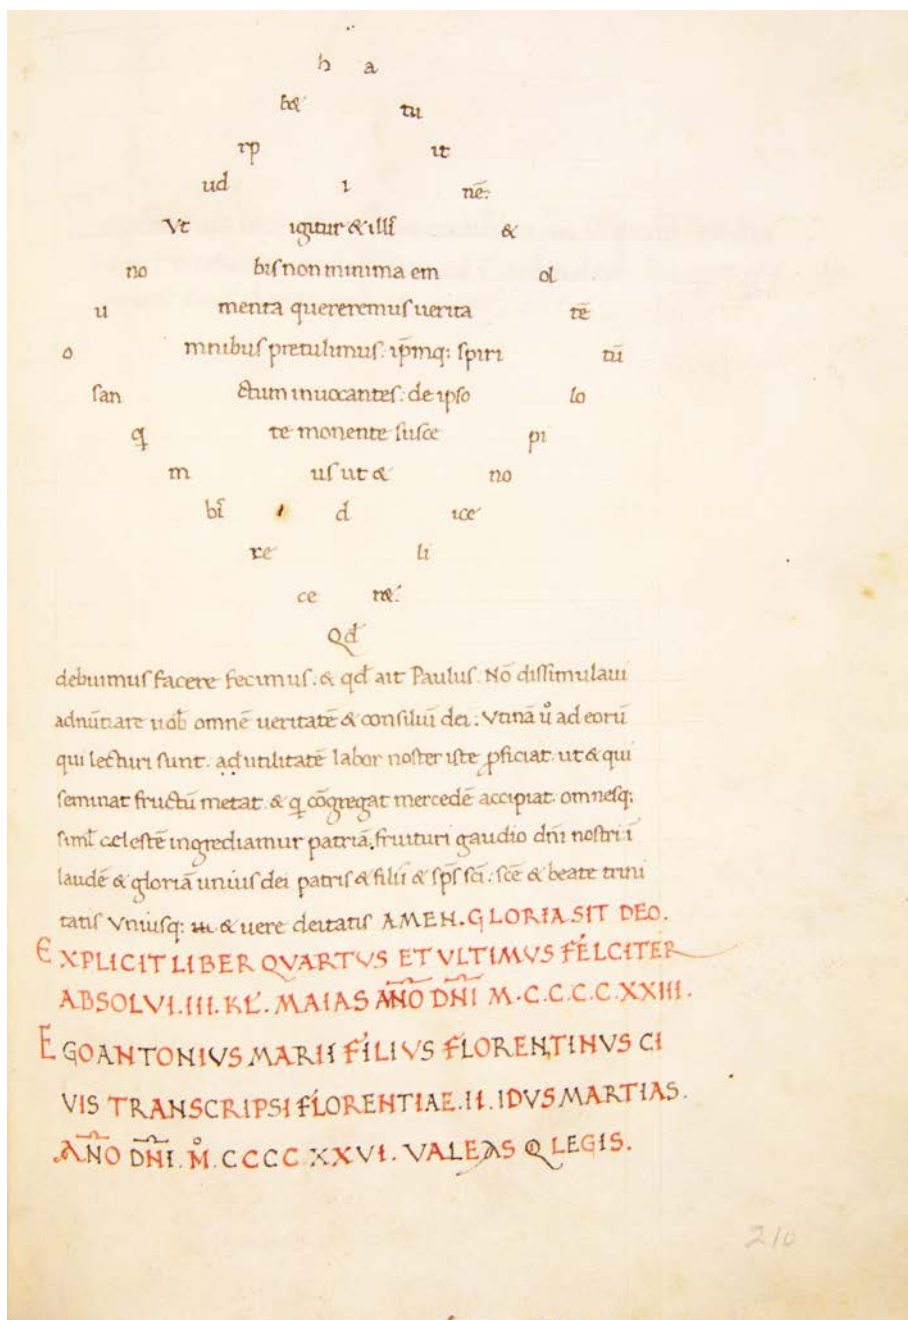 h a
b& tu
rp it
ud i nē:
Vt igitur & illi &
no bis non minima em ol
u menta quereremus uerita tē
o mnibus pretulimus. ip̄mq: spiri tū
san ctum inuocantes: de ipso lo
q̄ te monente susce pi
m us ut & no
bī d ice
re li
ce n&:
Qđ
debuimus facere fecimus. & qđ ait Paulus. Nō dissimulaui
adnūtiare uob̄ omnē ueritatē & consiliū dei: Vtinā ů ad eorū
qui lecturi sunt. ad utilitatē labor noster iste ꝓficiat. ut & qui
seminat fructū metat. & q̄ cōgregat mercedē accipiat. omnesq:
siml̄ celestē ingrediamur patriā. fruituri gaudio dn̄i nostri ī
laudē & gloriā unius dei patris & filii & sp̄s sc̄i: sc̄e & beate trini
tatis Vniusq: & uere deitatis AMEN. GLORIA SIT DEO.
EXPLICIT LIBER QVARTVS ET VLTIMVS FELCITER
ABSOLVI. III. KL̄. MAIAS AN̄O DN̄I M.C.C.C.C.XXIII.
EGO ANTONIVS MARII FILIVS FLORENTINVS CI
VIS TRANSCRIPSI FLORENTIAE. II. IDVS MARTIAS.
AN̄O DN̄I. M̊. CCCC XXVI. VALEAS Q LEGIS.
210